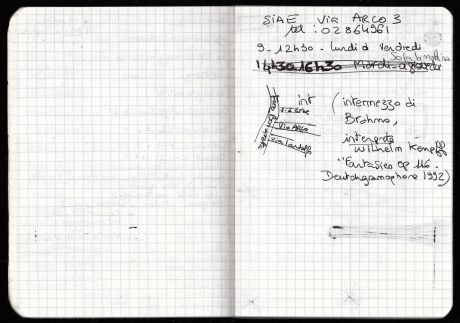 SIAE Via ARCO 3
tel : 02 864961
9 - 12h30 - lundi a vendredi
14h30 16h30 Mardi
int (intermezzo di
Brahms,
Via ARCO
Via Landolfo
Wilhelm Kempff
"Fantasien op 116.
Deutchgramophone 1992)